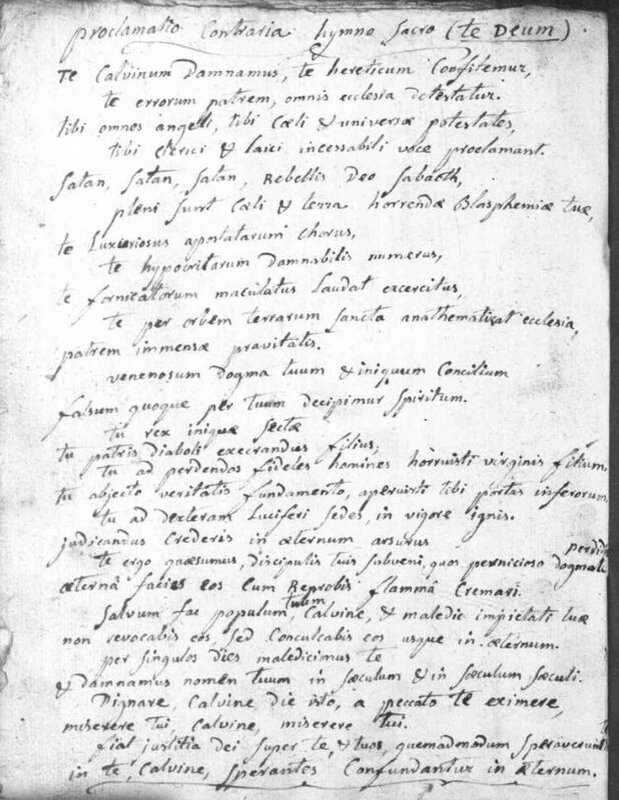 proclamatio Contraria hymno Sacro (te Deum)
Te Calvinum Damnamus, te hereticum Confitemur,
te errorum patrem, omnis ecclesia detestatur.
tibi omnes angeli, tibi Cœli & universæ potestates,
tibi Clerici & laici incessabili voce proclamant.
Satan, Satan, Satan, Rebellis Deo Sabaoth,
pleni Sunt Cœli & terra horrendæ Blasphemiæ tuæ,
te Luxuriosus apostatarum Chorus,
te hypocritarum Damnabilis numerus,
te fornicatorum maculatus Laudat excercitus,
te per orbem terrarum Sancta anathematizat ecclesia,
patrem immensæ pravitatis.
venenosum Dogma tuum & iniquum Concilium
falsum quoque per tuum decipimur Spiritum.
tu rex iniquæ Sectæ
tu patris Diaboli execrandus filius,
tu ad perdendos fideles homines horruisti virginis filium,
tu abjecto veritatis fundamento, aperuisti tibi portas inferorum.
tu ad dexteram Luciferi Sedes, in vigore ignis.
judicandus Crederis in æternum arsurus
te ergo quæsumus, Discipulis tuis Subveni, quos pernicioso dogmate perdidi
æternâ facies eos Cum Reprobis flammâ Cremari.
Salvum fac populum tuum, Calvine, & maledic impietati tuæ
non revocabis eos, Sed Conculcabis eos usque in æternum.
per Singulos Dies maledicimus te
& Damnamus nomen tuum in Sæculum & in Sæculum Sæculi.
Dignare, Calvine, Die isto, a peccato te eximere,
miserere tui, Calvine, miserere tui.
fiat justitia dei Super te, & tuos, quemadmodum Speraverunt
in te, Calvine, Sperantes Confundantur in æternum.